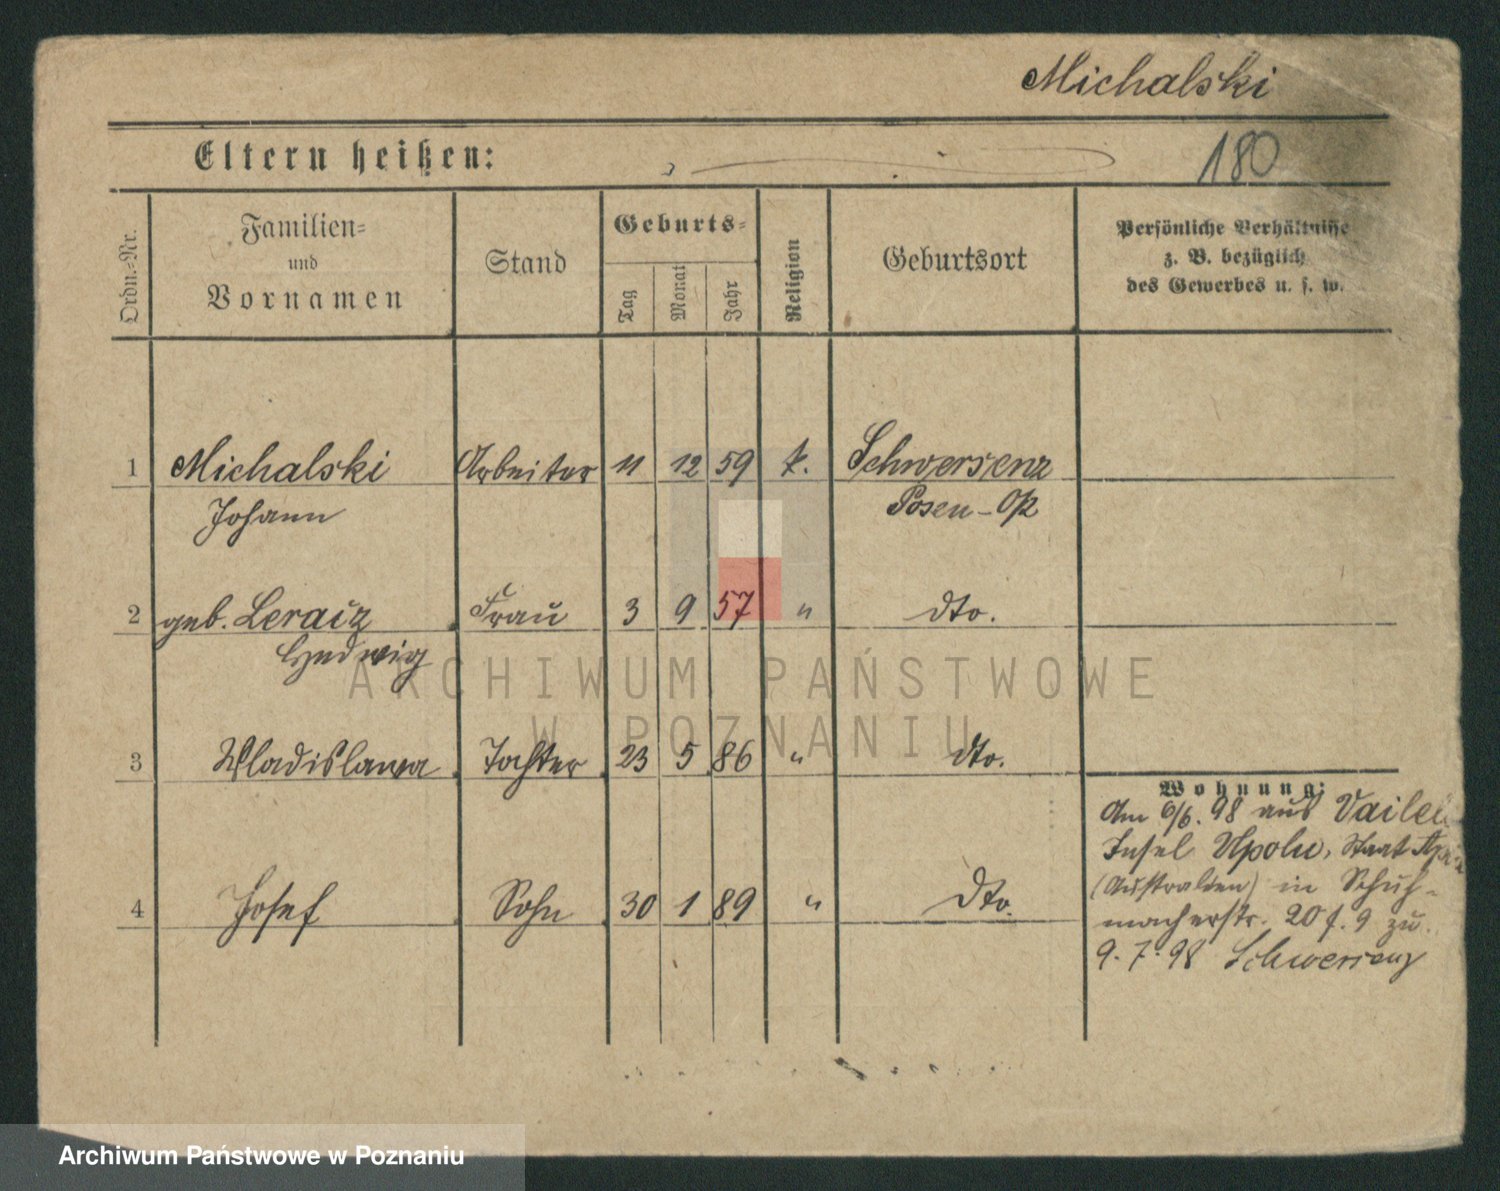 Michalski
Eltern heißen:
180
Ordn.-Nr.
Familien-
und
Vornamen
Stand
Geburts-
Tag
Monat
Jahr
Religion
Geburtsort
Persönliche Verhältnisse
z. B. bezüglich
des Gewerbes u. s. w.
1 Michalski Arbeiter 11 12 59 k. Schwersenz
Johann Posen-Op
2 geb. Leraiz Frau 3 9 57 " dto.
Hedwig
3 Wladislawa Tochter 23 5 86 " dto.
4 Josef Sohn 30 1 89 " dto.
Wohnung:
Am 6/6. 98 aus Vailei
Insel Upolu, Staat
(Australien) in Schuh-
macherstr. 20 f. 9 zu.
9. 7. 98 Schwersenz
ARCHIWUM PAŃSTWOWE
W POZNANIU
Archiwum Państwowe w Poznaniu